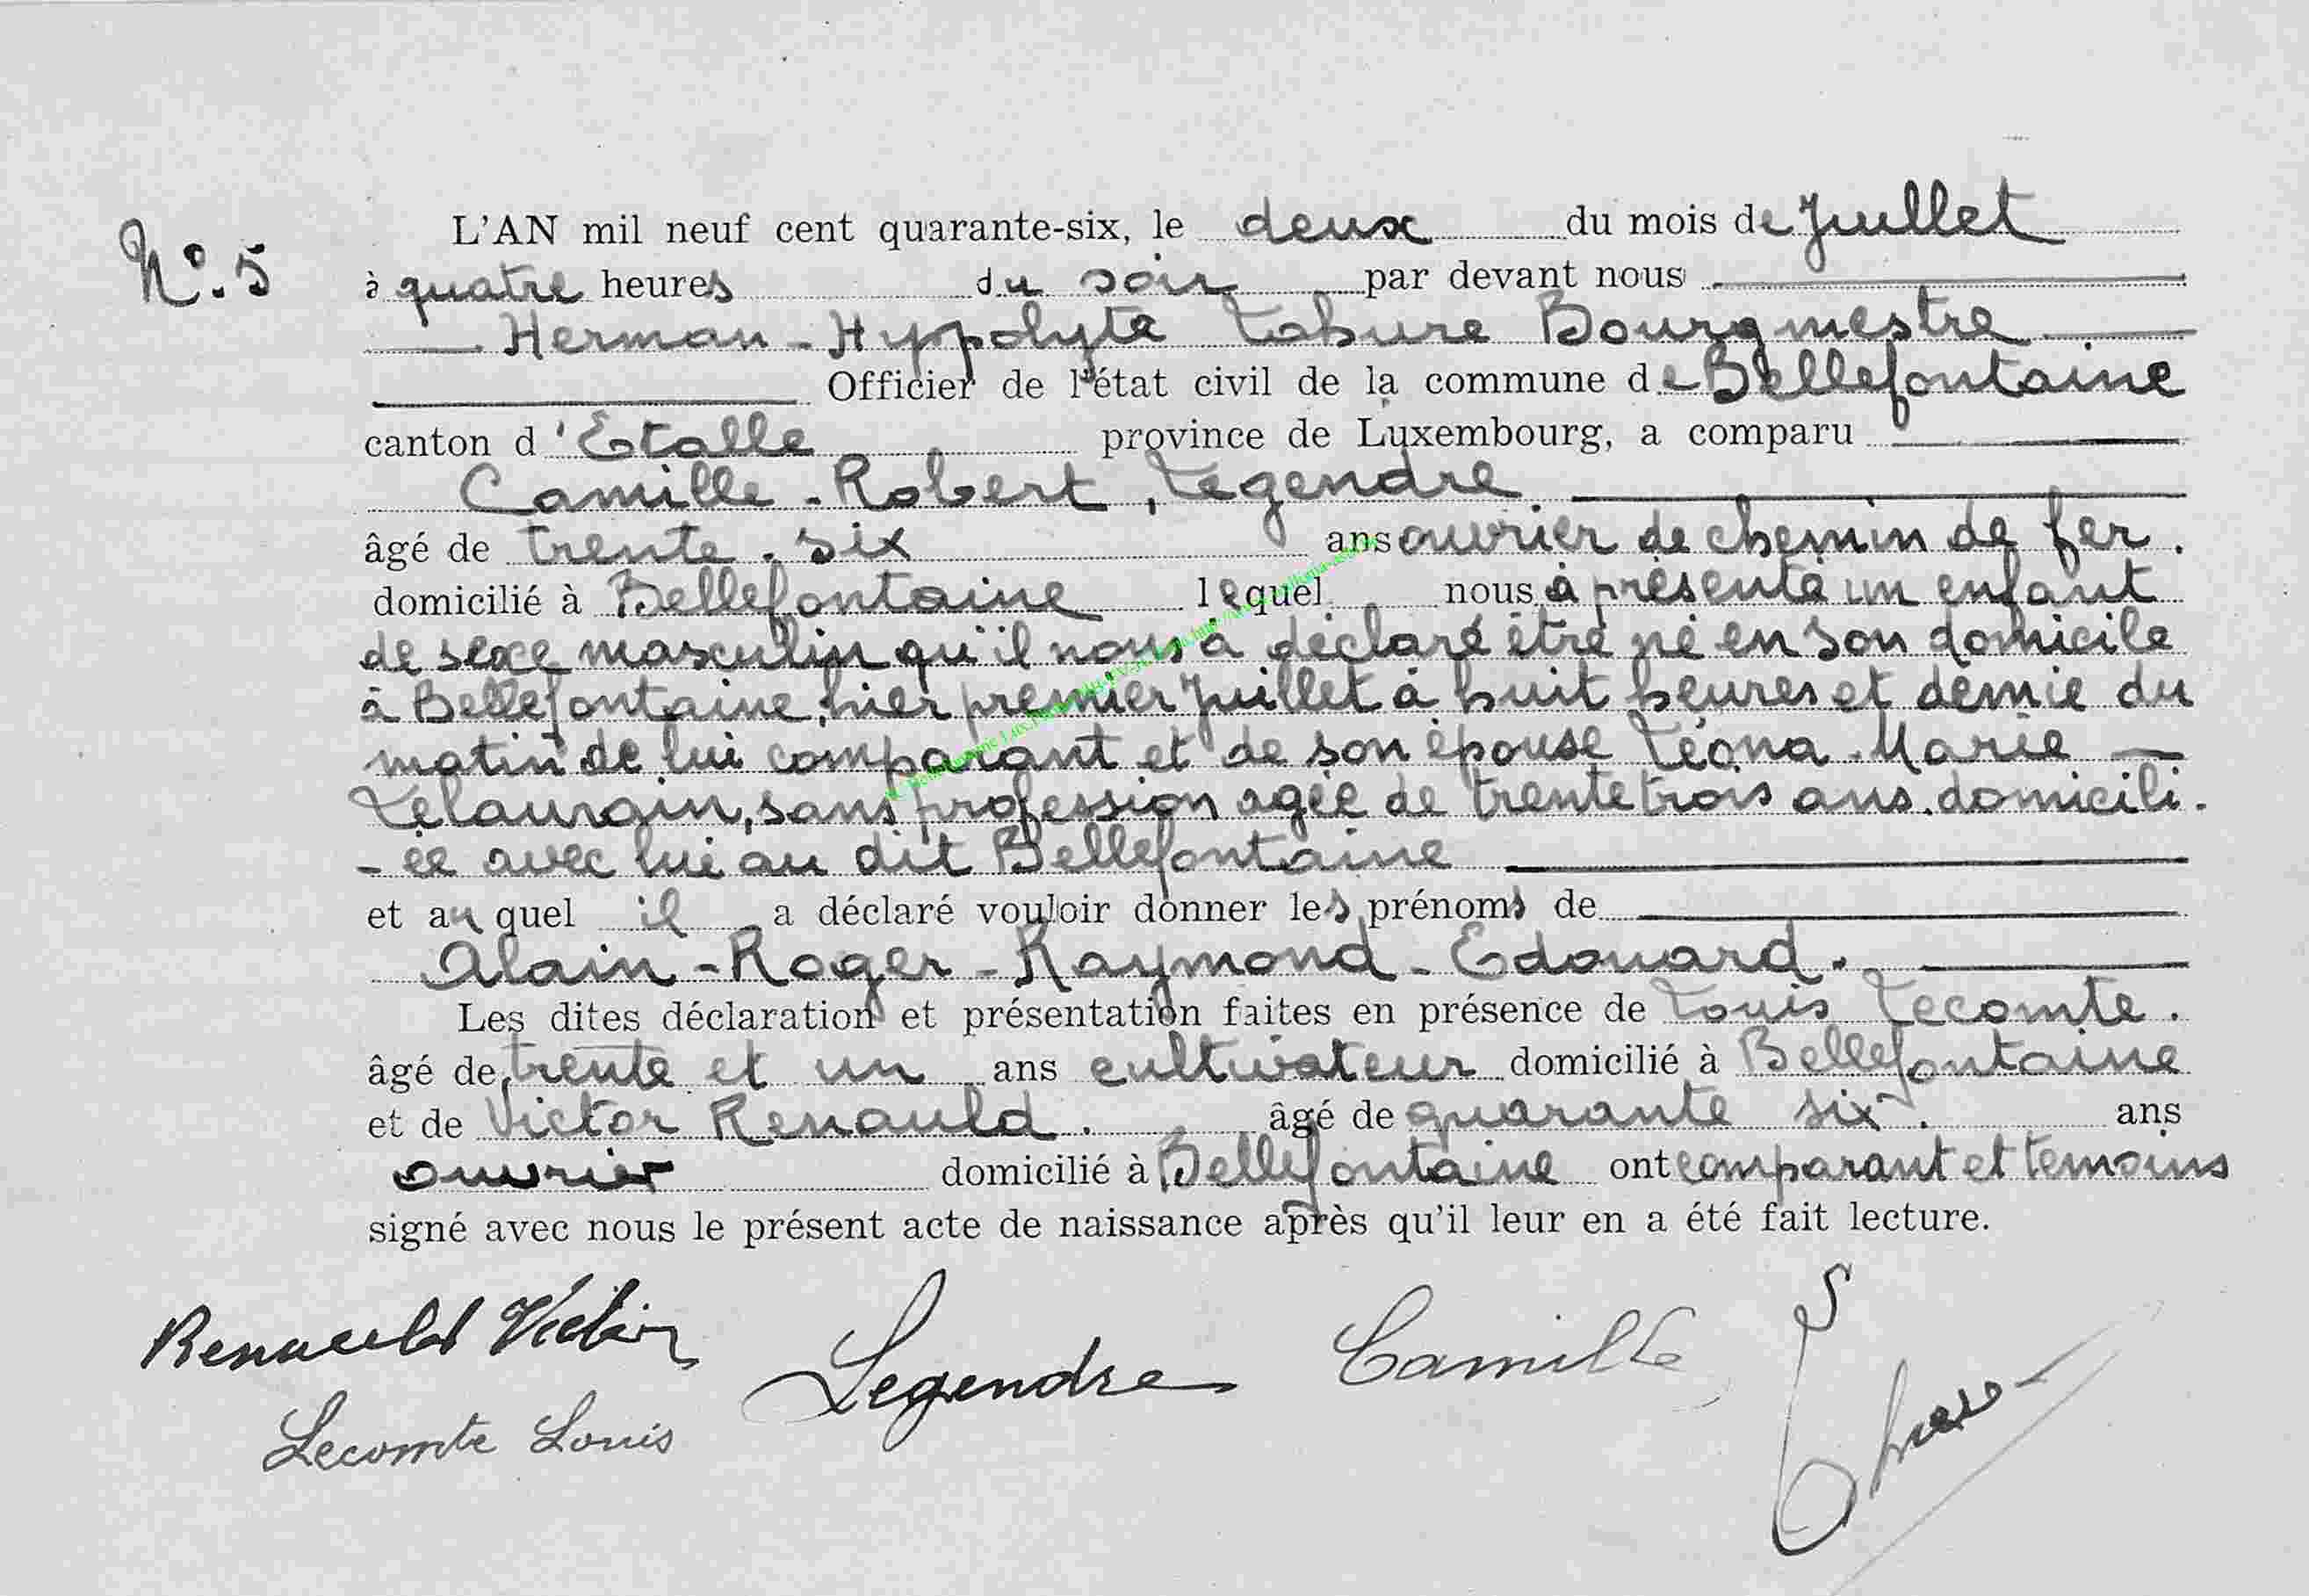 N°. 5
L'AN mil neuf cent quarante-six, le deux du mois de Juillet
à quatre heures du soir par devant nous
Herman - Hyppolyte Lahure Bourgmestre
Officier de l'état civil de la commune de Bellefontaine
canton d'Etalle province de Luxembourg, a comparu
Camille - Robert, Legendre
âgé de trente-six ans ouvrier de chemin de fer.
domicilié à Bellefontaine lequel nous à présenté un enfant
de sexe masculin qu'il nous a déclaré être né en son domicile
à Bellefontaine, hier premier Juillet à huit heures et demie du
matin de lui comparant et de son épouse Léona-Marie
Lelaurain, sans profession agée de trente trois ans domicili-
-ée avec lui au dit Bellefontaine
et au quel il a déclaré vouloir donner les prénoms de
Alain - Roger - Raymond - Edouard.
Les dites déclaration et présentation faites en présence de Louis Lecomte.
âgé de trente et un ans cultivateur domicilié à Bellefontaine
et de Victor Renauld. âgé de quarante six. ans
ouvrier domicilié à Bellefontaine ont comparant et temoins
signé avec nous le présent acte de naissance après qu'il leur en a été fait lecture.
Renauld Victor
Legendre Camille
Lecomte Louis